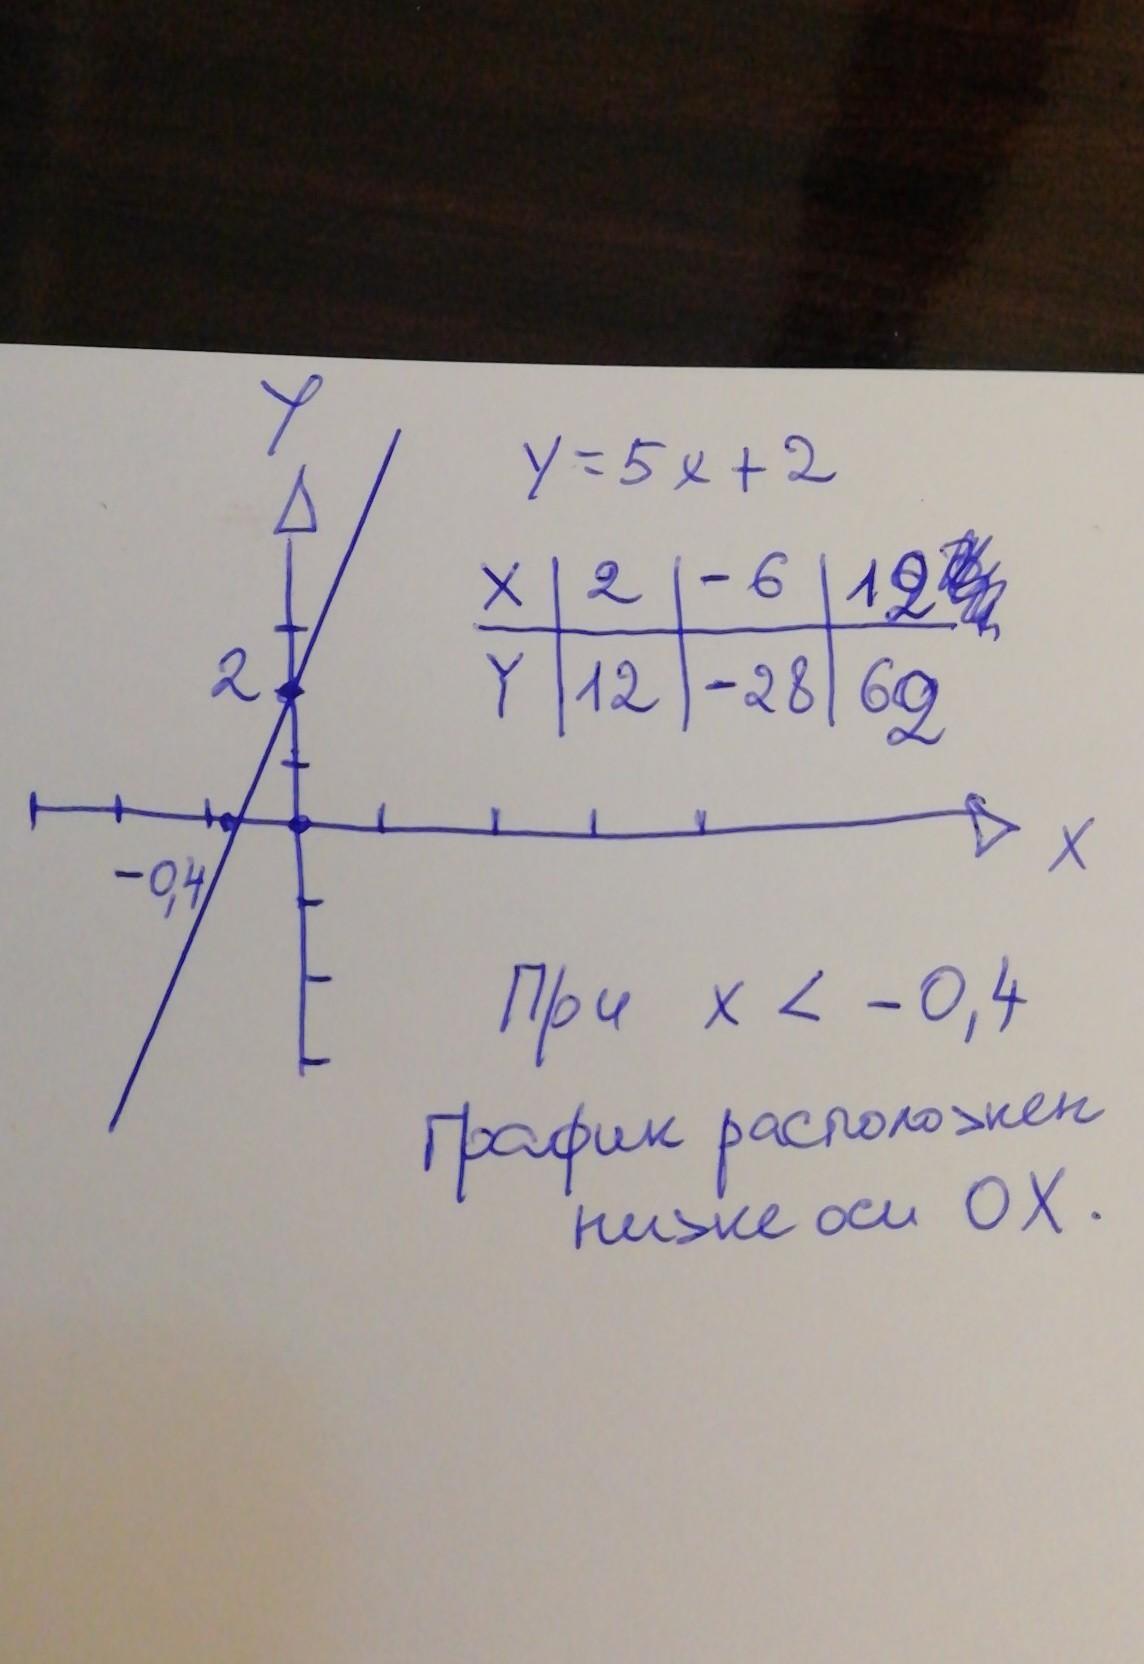 Y
Y=5x+2
X 2 -6 12
2
Y 12 -28 62
X
-0,4
При x < -0,4
График расположен
ниже оси OX.